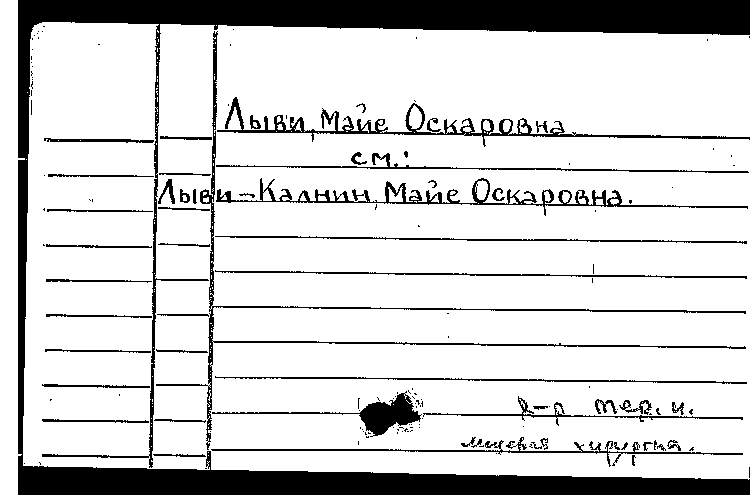 Лыви, Майе Оскаровна.
см.:
Лыви-Калнин, Майе Оскаровна.
тер. и.
лицевая хирургия.